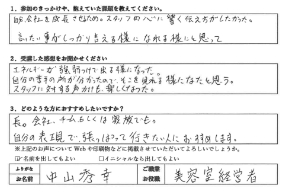 1. 参加のきっかけや、抱えていた課題を教えてください。
会社を成長させるため。スタッフの心に響く伝え方がしたかった。
言いたい事がしっかり言える様になれる様にと思って
2. 受講した感想をお聞かせください
エネルギーが強弱つけて出る様になった。
自分の声の
が分かったので、そこを見れる様になったと思う。
スタッフに対する声かけも
しました。
3. どのような方におすすめしたいですか?
長。会社、チームもしくは家族でも。
自分の表現で、引っぱって行きたい人におすすめします。
※上記のお声についてWebや印刷物などに掲載させていただいてよろしいでしょうか。
☑名前を出してもよい □イニシャルなら出してもよい
ふりがな
お名前 中山秀幸
ご職業
お役職 美容室経営者